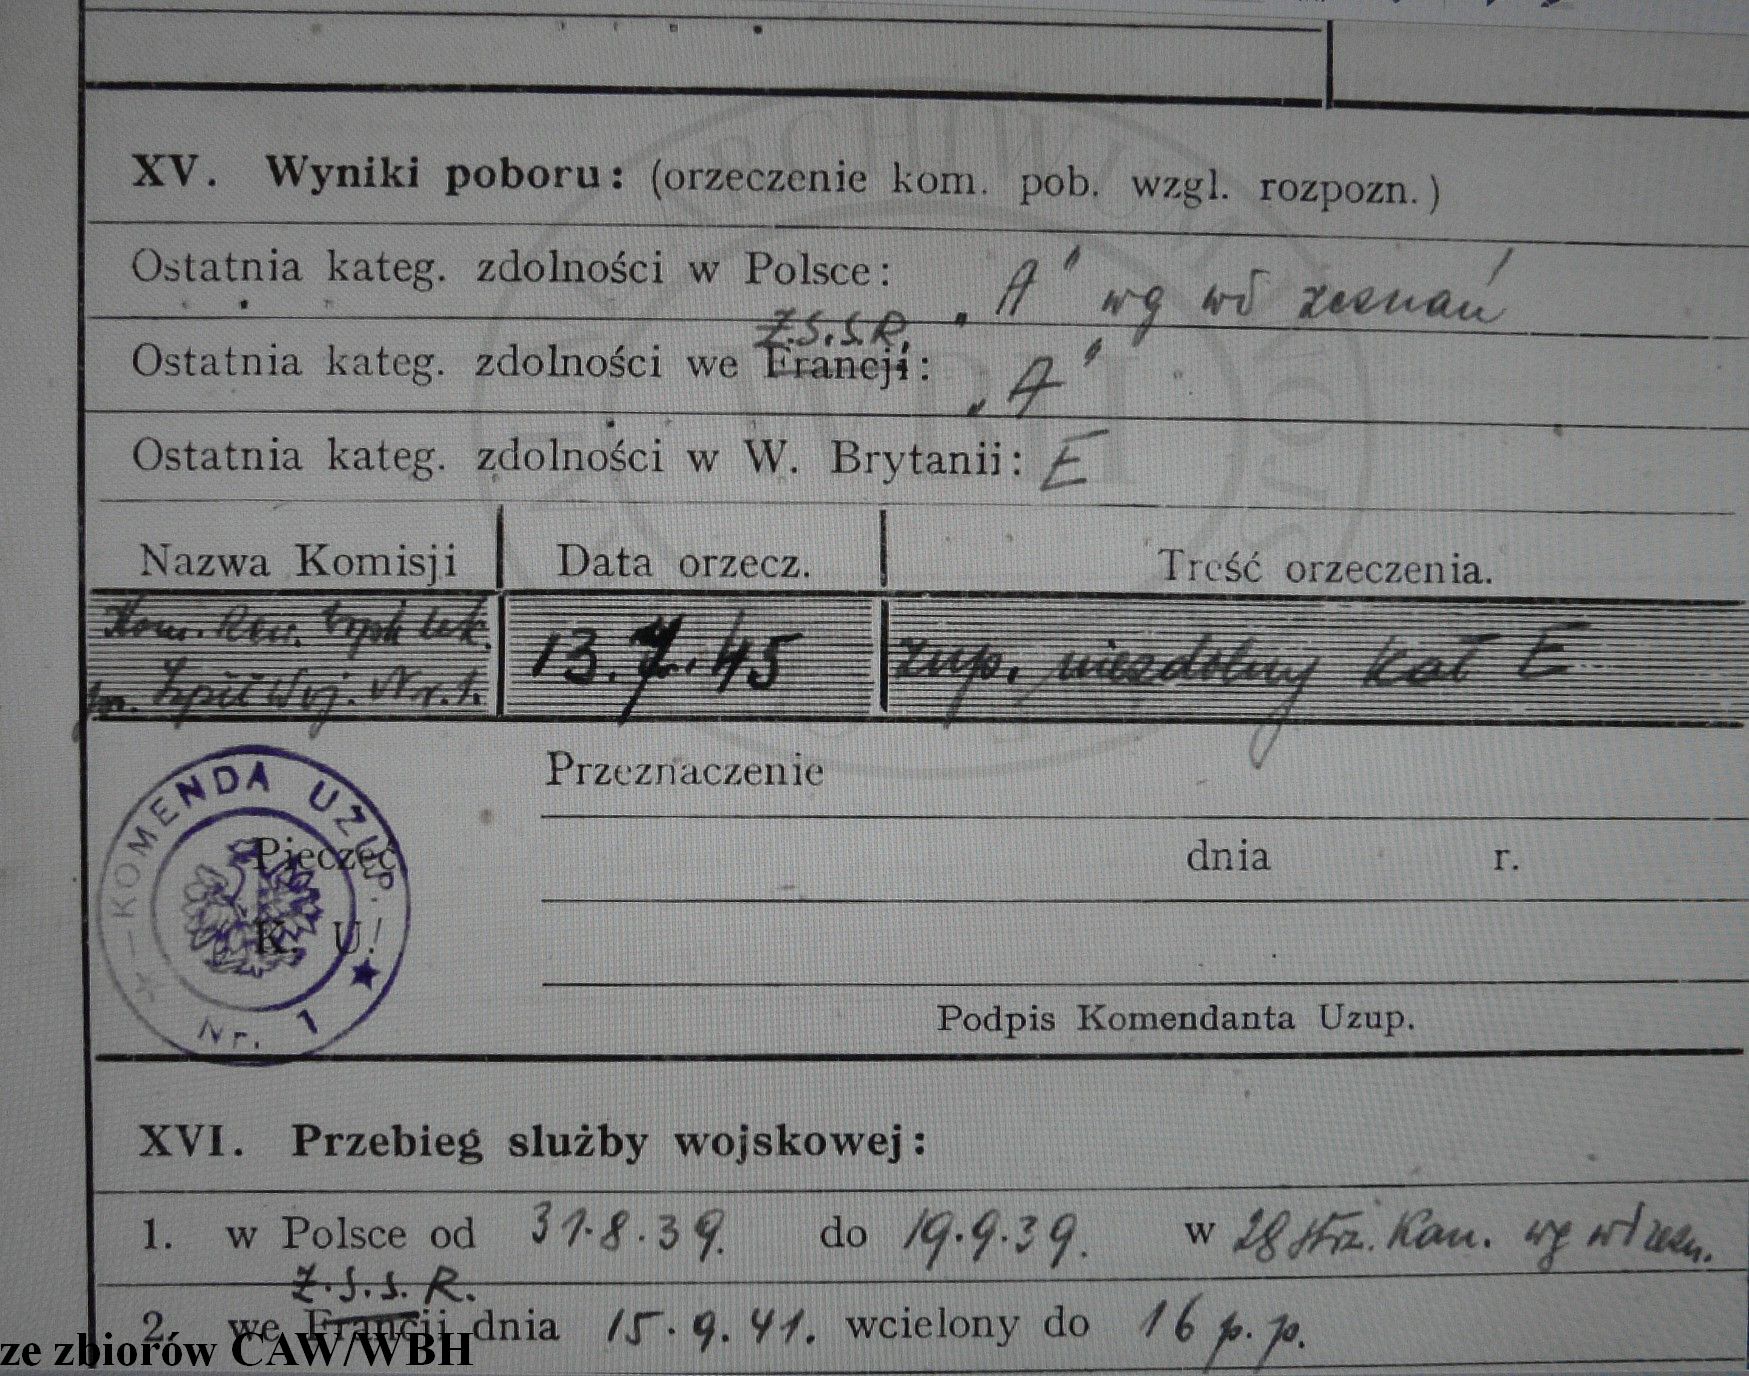 XV. Wyniki poboru: (orzeczenie kom. pob. wzgl. rozpozn.)
Ostatnia kateg. zdolności w Polsce: „A” wg wł zeznań
Z.S.S.R.
Ostatnia kateg. zdolności we Francji: „A”
Ostatnia kateg. zdolności w W. Brytanii: E
Nazwa Komisji Data orzecz. Treść orzeczenia.
Kom. Rew. lek. 13.7.45 zup. niezdolny kat E
Szpit Woj. Nr. 1.
KOMENDA UZUP.
Przeznaczenie
Pieczęć dnia r.
K. U.
Nr. 1
Podpis Komendanta Uzup.
XVI. Przebieg służby wojskowej:
1. w Polsce od 31.8.39. do 19.9.39. w 28 strz. Kan. wg wł zezn.
Z.S.S.R.
2. we Francji dnia 15.9.41. wcielony do 16 p.p.
ze zbiorów CAW/WBH